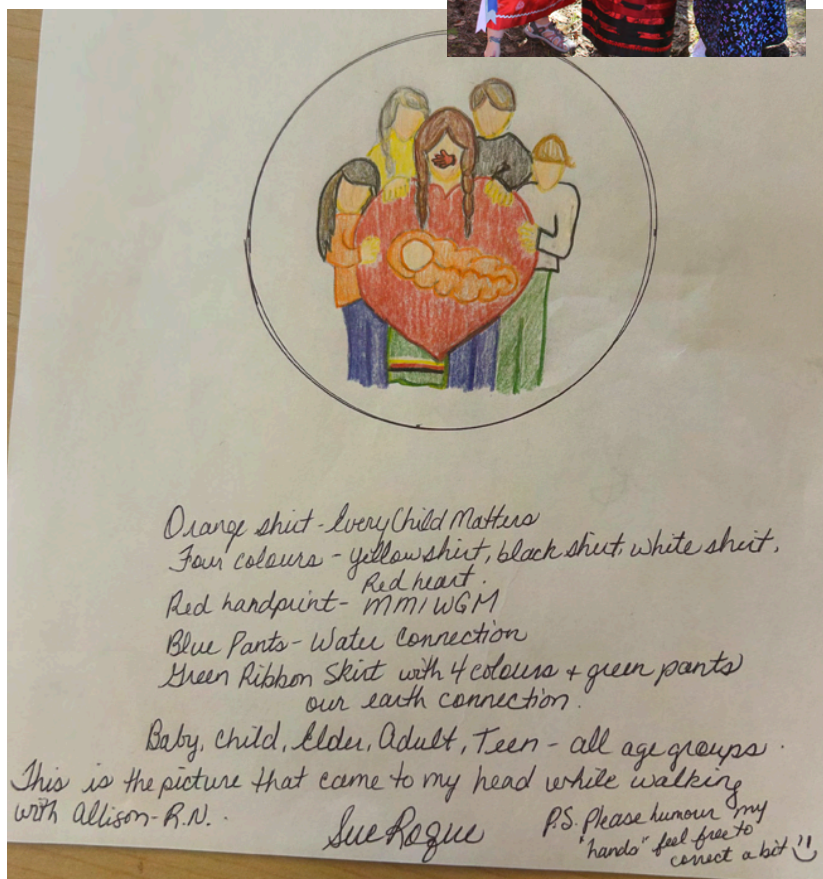 Orange shirt - Every Child Matters
Four colours - yellow shirt, black shirt, white shirt,
Red heart.
Red handprint - MMIWGM
Blue Pants - Water Connection
Green Ribbon Skirt with 4 colours + green pants
our earth connection.
Baby, Child, Elder, Adult, Teen - all age groups.
This is the picture that came to my head while walking
with Allison - R.N..
Sue Rogue
P.S. Please humour my
"hands" feel free to
correct a bit